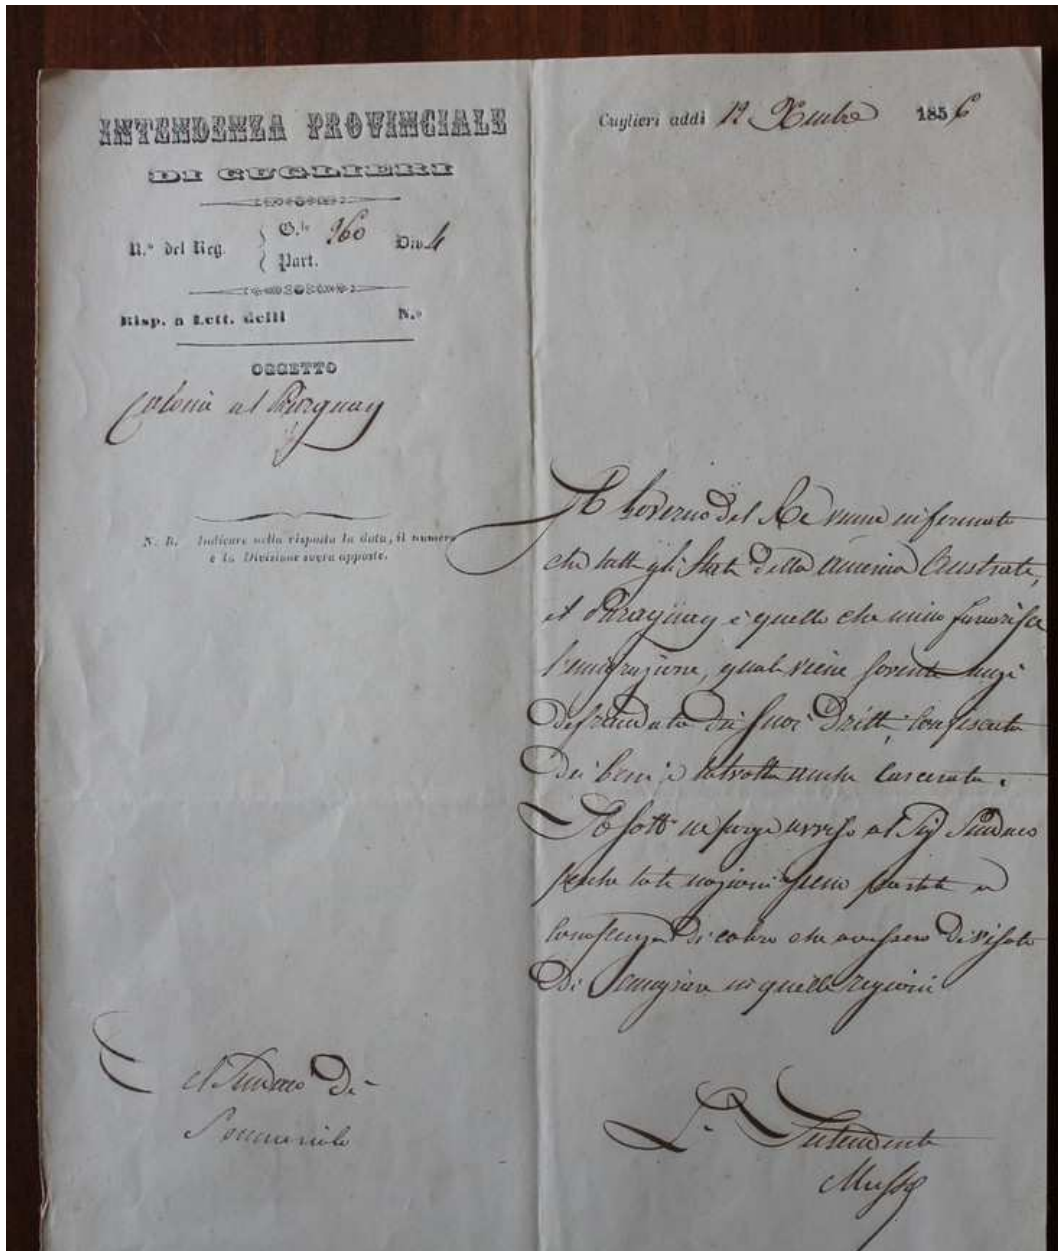 INTENDENZA PROVINCIALE
DI CUGLIERI
N.º del Reg. G.le 960 Div. 4
Part.
Risp. a Lett. delli N.º
OGGETTO
Colonia al Paraguay
N. B. Indicare nella risposta la data, il numero
e la Divisione sovra apposte.
Cuglieri addì 12 Xmbre 1856
Il Governo del Re venne informato
che tutti gli Stati della America Australe,
il Paraguay è quello che meno favorisce
l'emigrazione, quale viene sovente anzi
defraudata dei suoi Dritti, confiscata
Dei beni, e talvolta anche carcerata.
Lo sott. ne porge avviso al Sig. Sindaco
perché tali nozioni sieno portate a
conoscenza Di coloro che avessero Divisato
Di Emigrare in quelle regioni
Al Sindaco Di
L'Intendente
Musso